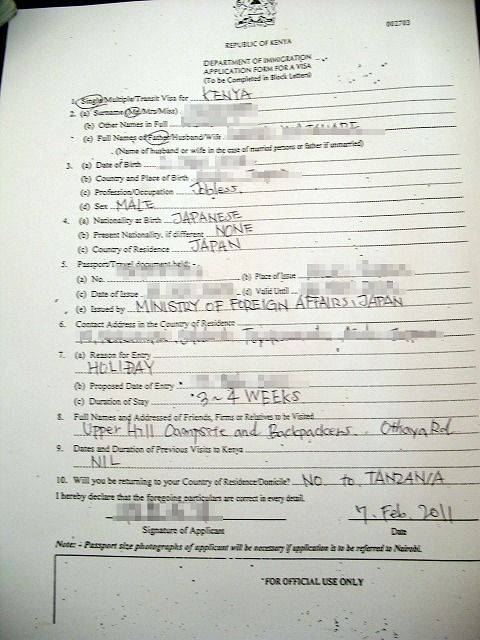 002703
REPUBLIC OF KENYA
DEPARTMENT OF IMMIGRATION
APPLICATION FORM FOR A VISA
(To be Completed in Block Letters)
1. Single/Multiple/Transit Visa for KENYA
2. (a) Surname (Mr/Mrs/Miss)
(b) Other Names in Full
(c) Full Names of Father/Husband/Wife
(Name of husband or wife in the case of married persons or father if unmarried)
3. (a) Date of Birth
(b) Country and Place of Birth
(c) Profession/Occupation Jobless.
(d) Sex MALE
4. (a) Nationality at Birth JAPANESE
(b) Present Nationality, if different NONE
(c) Country of Residence JAPAN
5. Passport/Travel document held:-
(a) No. (b) Place of Issue
(c) Date of Issue (d) Valid Until
(e) Issued by MINISTRY OF FOREIGN AFFAIRS, JAPAN
6. Contact Address in the Country of Residence
7. (a) Reason for Entry
HOLIDAY
(b) Proposed Date of Entry
(c) Duration of Stay 3~4 WEEKS
8. Full Names and Addressed of Friends, Firms or Relatives to be Visited
Upper Hill Campsite and Backpackers. Othaya Rd
9. Dates and Duration of Previous Visits to Kenya
NIL
10. Will you be returning to your Country of Residence/Domicile? NO. to TANZANIA
I hereby declare that the foregoing particulars are correct in every detail.
7. Feb. 2011
Signature of Applicant Date
Note: - Passport size photographs of applicant will be necessary if application is to be referred to Nairobi.
*FOR OFFICIAL USE ONLY